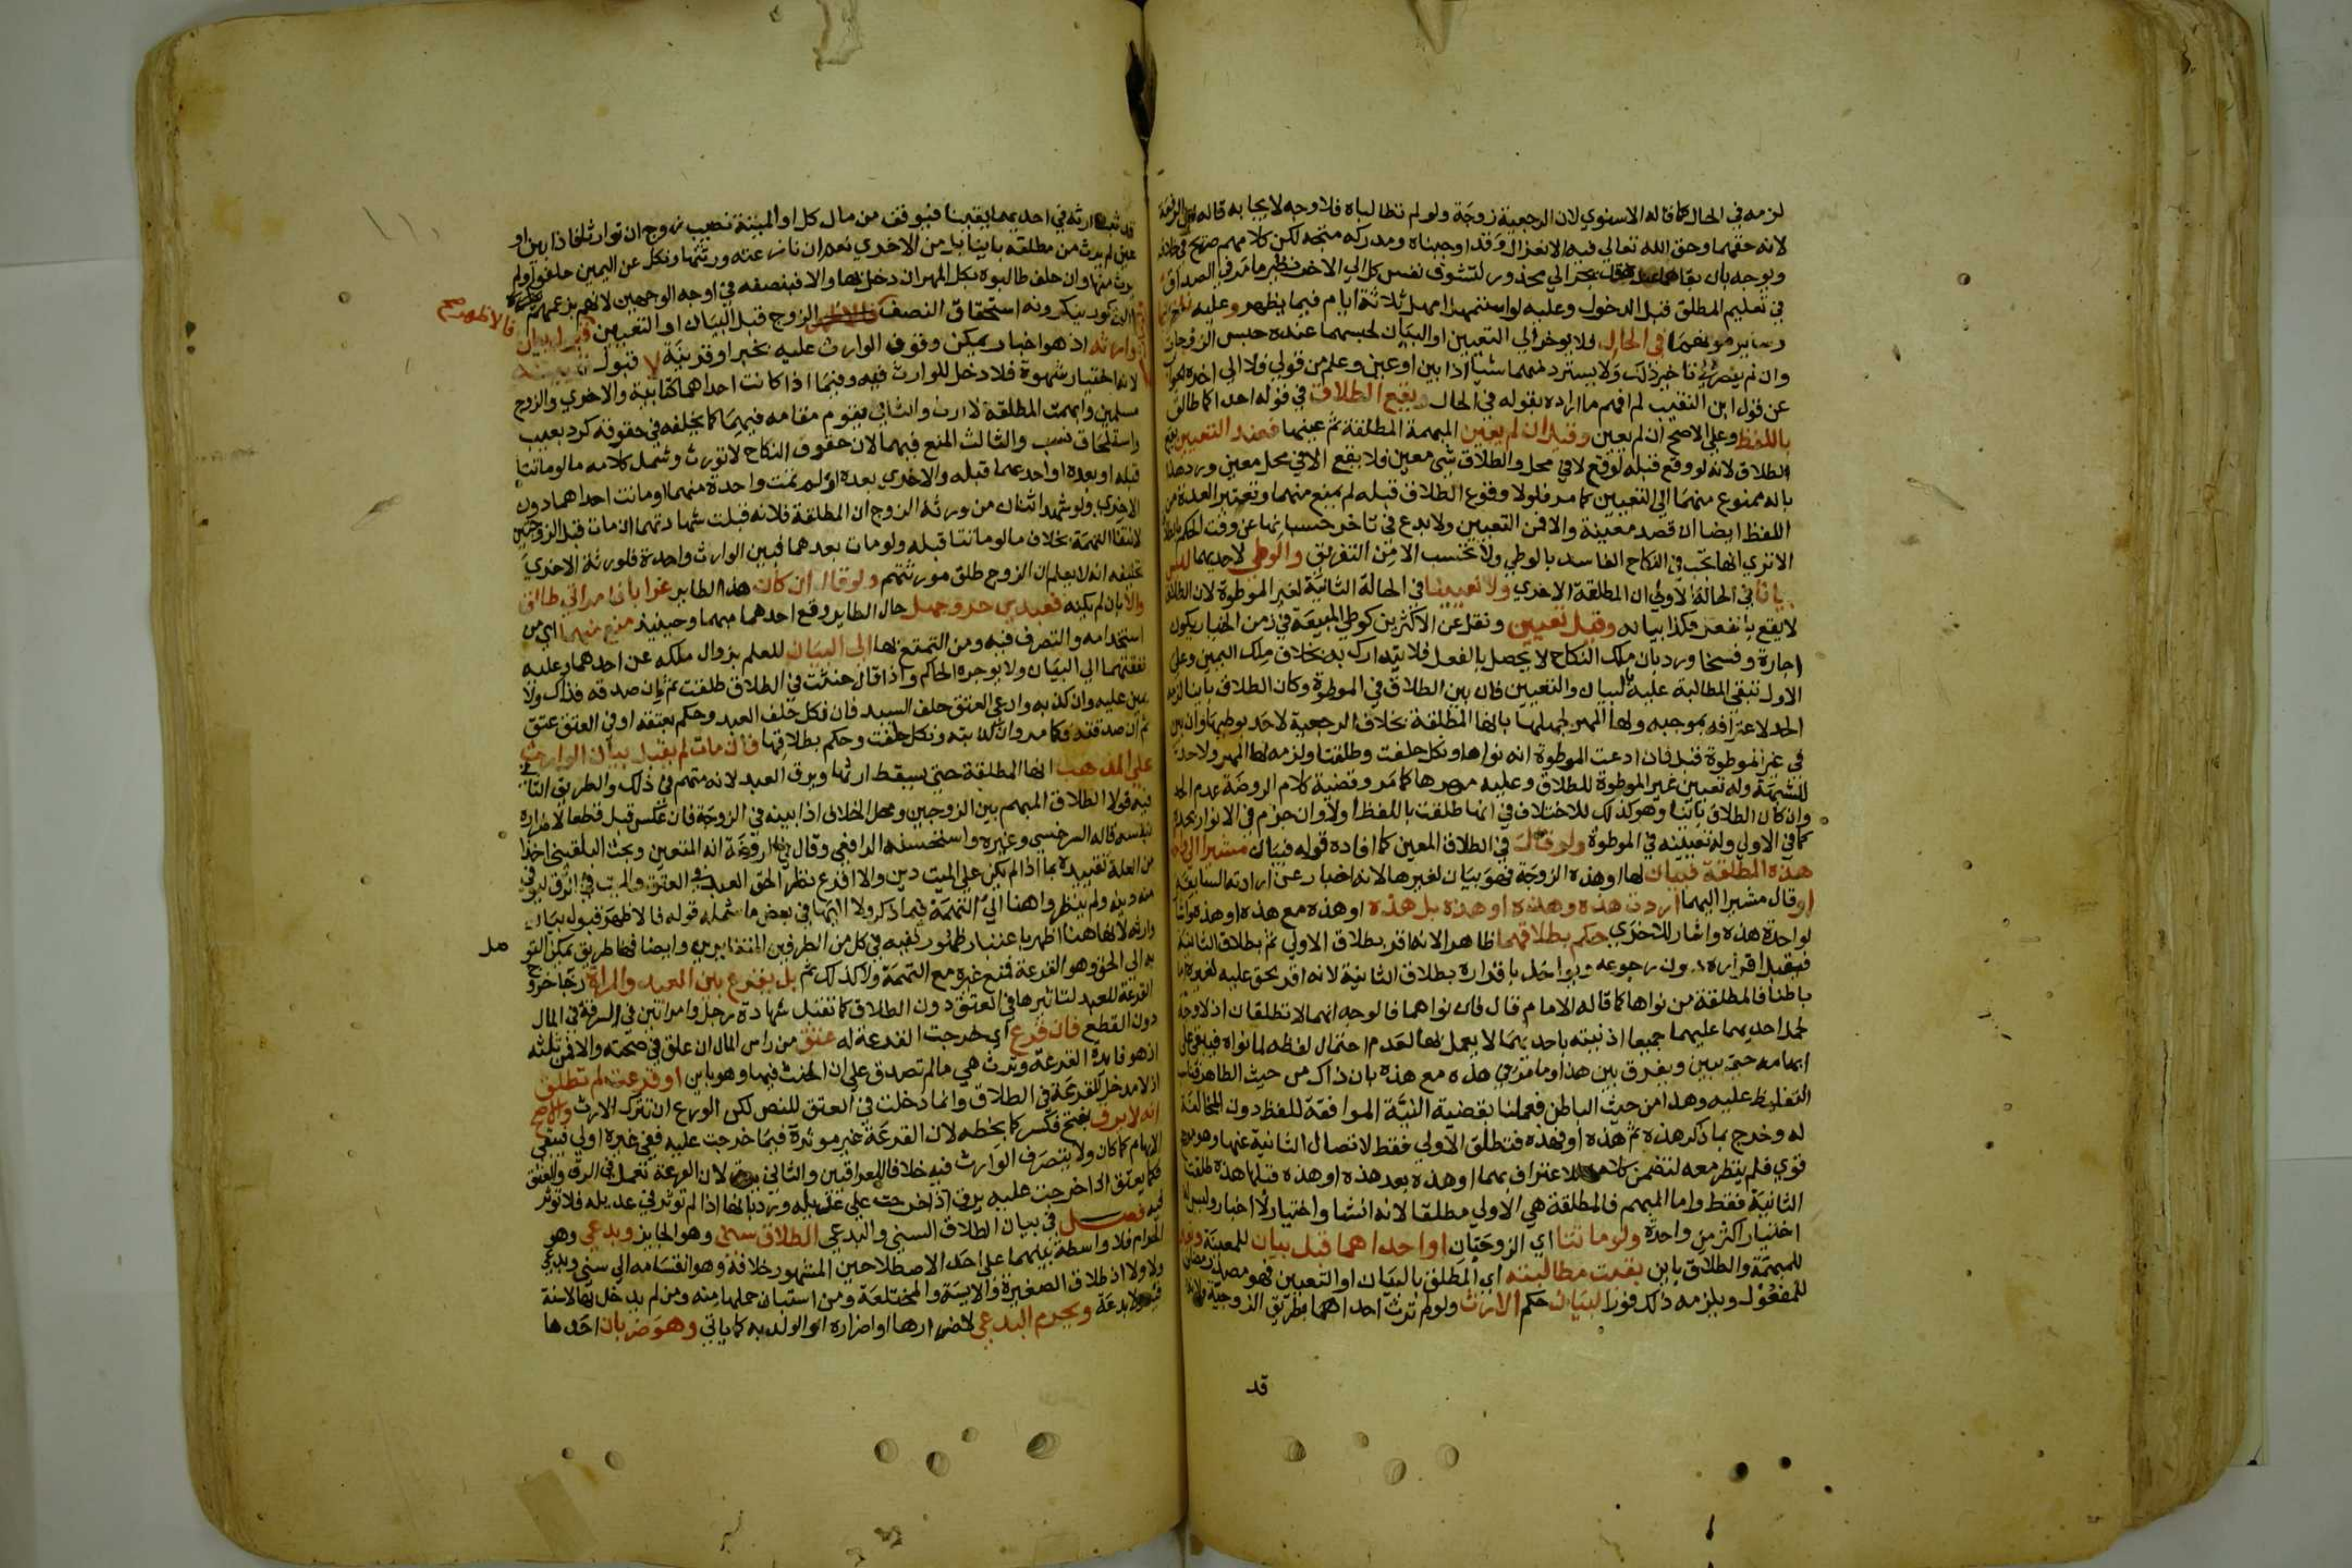 لزمه في الحال كما قاله الاسنوي لان الرجعية زوجة ولو لم تطالباه فلا وجه لايجابه قاله
لانه حقهما وحق الله تعالى فيه الانعزال وقد اوجبناه ومدركه متجه لكن كلامهم صريح في خلافه
ويوجه بان بقاهما عنده يجر الي محذور لتشوف نفس كل الي الاخر نظير ما مر في الصداق
في تعليم المطلق قبل الدخول وعليه لو استمهل امهل ثلاثة ايام فيما يظهر وعليه
وساير مونهما في الحال فلا يوخر الي التعيين او البيان لحبسهما عنده حبس الزوجات
وان لم يقصر في تاخير ذلك ولا يسترد منهما شيا اذا بين او عين وعلم من قولي ولا الى اخره الجواب
عن قول ابن النقيب لم افهم ما اراده بقوله في الحال ويقع الطلاق في قوله احداكما طالق
باللفظ وعلى الاصح ان لم يعين وقيل ان لم يعين المبهمة المطلقة ثم عينها فعند التعيين يقع
الطلاق لانه لو وقع قبله لوقع لا في محل والطلاق شي معين فلا يقع الا في محل معين ورد هذا
بانه ممنوع منهما الي التعيين كما مر فلولا وقوع الطلاق قبله لم يمنع منهما وتعتبر العدة من
اللفظ ايضا ان قصد معينة والا فمن التعيين ولا بدع في تاخر حسبانها عن وقت الحكم بالطلاق
الاترى انها تجب في النكاح الفاسد بالوطي ولا تحتسب الا من التفريق والوطي لاحديهما ليس
بيانا في الحالة الاولى ان المطلقة الاخري ولا تعيينا في الحالة الثانية لغير الموطوة لان الطلاق
لا يقع بالفعل فكذا بيانه وقيل تعيين ونقل عن الاكثرين كوطي المبيعة في زمن الخيار يكون
اجازة وفسخا ورد بان ملك النكاح لا يحصل بالفعل فلا يتدارك به بخلاف ملك اليمين وعلى
الاول تبقى المطالبة عليه بالبيان والتعيين فان بين الطلاق في الموطوة وكان الطلاق باينا لزمه
الحد لاعترافه بموجبه ولها المهر لجهلها بانها المطلقة بخلاف الرجعية لا حد بوطيها وان بين
في غير الموطوة قبل فان ادعت الموطوة انه نواها ونكل حلفت وطلقتا ولزمه لها المهر ولا حد
للشبهة وله تعيين غير الموطوة للطلاق وعليه مهرها كما مر وقضية كلام الروضة عدم الحد
وان كان الطلاق باينا وهو كذلك للاختلاف في انها طلقت باللفظ اولا وان جزم في الانوار بحده
كما في الاولى وله تعيينه في الموطوة ولو قال في الطلاق المعين كما افاده قوله فبيان مشيرا الي
هذه المطلقة فبيان لها او هذه الزوجة فهو بيان لغيرها لانه اخبار عن ارادته السابقة
او قال مشيرا اليهما اردت هذه وهذه او هذه بل هذه او هذه مع هذه او هذه
لواحدة هذه واشار للاخري حكم بطلاقهما ظاهرا لانه اقر بطلاق الاولي ثم بطلاق الثانية
فيقبل اقراره دون رجوعه ويواخذ باقراره بطلاق الثانية لانه اقر بحق عليه لغيره اما
باطنا فالمطلقة من نواها كما قاله الامام قال فان نواهما فالوجه انهما لا تطلقان اذ لا وجه
لحمل احديهما عليهما جميعا اذ نيته باحديهما لا يعمل بها لعدم احتمال لفظه لما نواه فيبقى على
ابهامه حتى يبين ويفرق بين هذا وما مر في هذه مع هذه بان ذاك من حيث الظاهر فناسب
التغليظ عليه وهذا من حيث الباطن فعملنا بقضية النية الموافقة للفظ دون المخالفة
له وخرج بما ذكر هذه ثم هذه او فهذه فتطلق الاولي فقط لانفصال الثانية عنها وهو
قوي فلم ينظر معه لتضمن كلامه للاعتراف بهما او هذه بعد هذه او هذه قبلها هذه طلقت
الثانية فقط واما المبهم فالمطلقة هي الاولي مطلقا لانه انشا واختيار لا اخبار وليس له
اختيار اكثر من واحدة ولو ماتتا اي الزوجتان او احداهما قبل بيان للمعينة
للمبهمة والطلاق باين بقيت مطالبته اي المطلق بالبيان او التعيين فهو مصدر مضاف
للمفعول ويلزمه ذلك فورا لبيان حكم الارث ولو لم ترث احداهما بطريق الزوجية
قد
قد ثبت ارثه في احديهما يقينا فيوقف من مال كل او الميتة نصيب زوج ان توارثا فاذا بين او
عين لم يرث من مطلقة باينا بل من الاخري نعم ان نازعته ورثتها ونكل عن اليمين حلفوا ولم
يرث منها وان حلف طالبوه بكل المهر ان دخل بها والا فبنصفه في اوجه الوجهين لانهم بزعمهم
المذكور ينكرونه استحقاق النصف الزوج قبل البيان او التعيين قبول بيان
فالاظهر صح
وارثه اذ هو اخبار يمكن وقوف الوارث عليه بخبر او قرينة لا قبول تعيينه
لانه اختيار شهوة فلا دخل للوارث فيه وفيما اذا كانت احداهما كتابية والاخري والزوج
مسلمين وابهمت المطلقة لا ارث والثاني يقوم مقامه فيهما كما يخلفه في حقوقه كرد بعيب
واستلحاق نسب والثالث المنع فيهما لان حقوق النكاح لا تورث وشمل كلامه ما لو ماتتا
قبله او بعده او احديهما قبله والاخري بعده او لم تمت واحدة منهما او ماتت احداهما دون
الاخري ولو شهد اثنان من ورثة الزوج ان المطلقة فلانه قبلت شهادتهما ان مات قبل الزوجتين
لانتفا التهمة بخلاف ما لو ماتتا قبله ولو مات بعدهما فبين الوارث واحدة فلورثة الاخري
تحليفه انه لا يعلم ان الزوج طلق مورثتهم ولو قال ان كان هذا الطاير غرابا فامراتي طالق
والا بان لم يكنه فعبدي حر وجهل حال الطاير وقع احدهما مبهما وحينيذ منع منهما اي من
استخدامه والتصرف فيه ومن التمتع بها الى البيان للعلم بزوال ملكه عن احدهما وعليه
نفقتهما الي البيان ولا يوجره الحاكم واذا قال حنثت في الطلاق طلقت ثم ان صدقه فذاك ولا
يمين عليه وان كذبه وادعي العتق حلف السيد فان نكل حلف العبد وحكم بعتقه او في العتق عتق
ثم ان صدقته فكما مر وان كذبته ونكل حلفت وحكم بطلاقها فان مات لم يقبل بيان الوارث
على المذهب انها المطلقة حتى يسقط ارثها ويرق العبد لانه متهم في ذلك والطريق الثاني
فيه قولا الطلاق المبهم بين الزوجين ومحل الخلاف اذا بينه في الزوجة فان عكس قبل قطعا لاضراره
بنفسه قاله السرخسي وغيره واستحسنه الرافعي وقال في الروضة انه المتعين وبحث البلقيني اخذا
من العلة تقييده بما اذا لم يكن علي الميت دين والا اقرع نظرا لحق العبد في العتق والميت في الرق ليوفي
منه دينه ولم ينظروا هنا الي التهمة فيما ذكر ولا اليها في بعض ما شمله قوله فالاظهر قبول بيان
وارثه لانها هنا اظهر باعتبار ظهور نفيه في كل من الطرفين المتغايرين وايضا فهنا طريق يمكن التوصل
به الي الحق وهو القرعة فمنع غيره مع التهمة ولا كذلك ثم بل يقرع بين العبد والمراة رجا خروج
القرعة للعبد لتاثيرها في العتق دون الطلاق كما تقبل شهادة رجل وامراتين في السرقة في المال
دون القطع فان قرع اي خرجت القرعة له عتق من راس المال ان علق في صحته والا فمن ثلثه
اذ هو فايدة القرعة وترث هي ما لم تصدق على ان الحنث فيها وهو باين او قرعت لم تطلق
اذ لا مدخل للقرعة في الطلاق وانما دخلت في العتق للنص لكن الورع ان تترك الارث والاصح
انه لا يرق بفتح فكسر كما بخطه لان القرعة غير موثرة فيما خرجت عليه ففي غيره اولي فيبقى
الابهام كما كان ولا يتصرف الوارث فيه خلافا للعراقيين والثاني يرق لان القرعة تعمل في الرق والعتق
فكما يعتق اذا خرجت عليه يرق اذا خرجت علي عديله ورد بانها اذا لم توثر في عديله فلا توثر
فيه فصل في بيان الطلاق السني والبدعي الطلاق سني وهو الجايز وبدعي وهو
الحرام فلا واسطة بينهما على احد الاصطلاحين المشهور خلافه وهو انقسامه الي سني وبدعي
ولا ولا اذ طلاق الصغيرة والايسة والمختلعة ومن استبان حملها منه ومن لم يدخل بها لا سنة
فيه ولا بدعة ويحرم البدعي لاضرارها او اضراره او الولد به كما ياتي وهو ضربان احدها